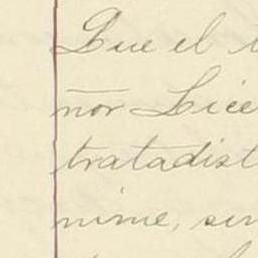 Que el
ñor Lice
tratadist
nime, sin